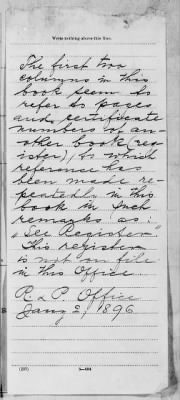 Write nothing above this line.
The first two
columns in this
book seem to
refer to pages
and certificate
numbers of an-
other book (reg-
ister), to which
reference has
been made re-
peatedly in this
book in such
remarks as:
"See Register"
This register
is not on file
in this Office
R. & P. Office
Jany 2, 1896
(257) 3—494